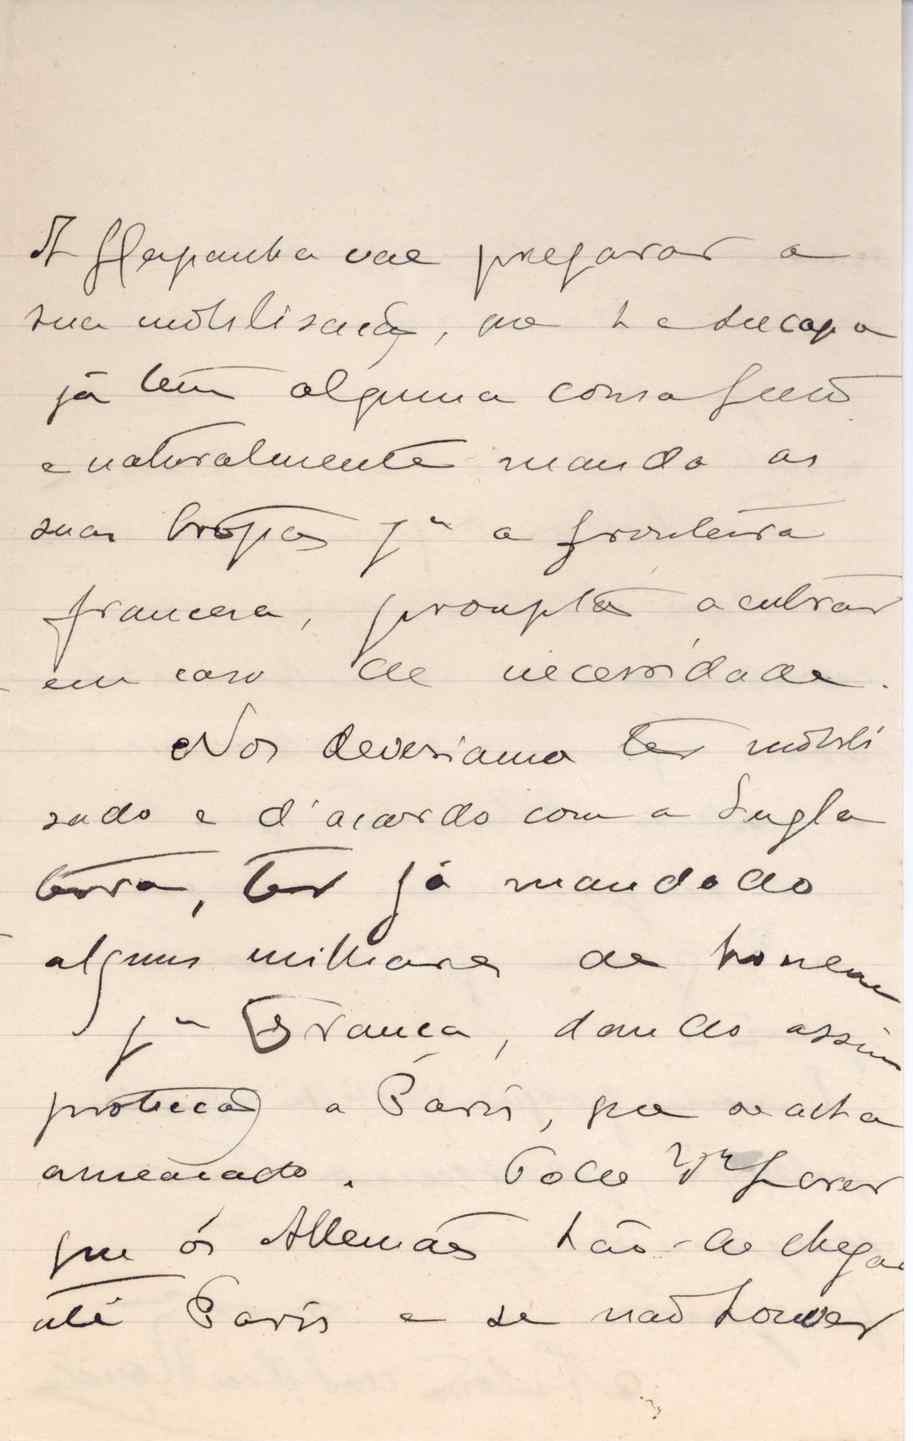 A Hespanha vae preparar a
sua mobilisação, que
já tem alguma cousa feito
e naturalmente manda as
suas tropas pª a fronteira
francesa, prompta a entrar
em caso de necessidade.
Nos deveriamos ter mobili
sado e d'acordo com a Ingla
terra, ter já mandado
alguns milhares de homens
pª França, dando assim
protecção a Paris, que se acha
ameaçado. Pode
que os Allemães hão-de chegar
até Paris e se não houver